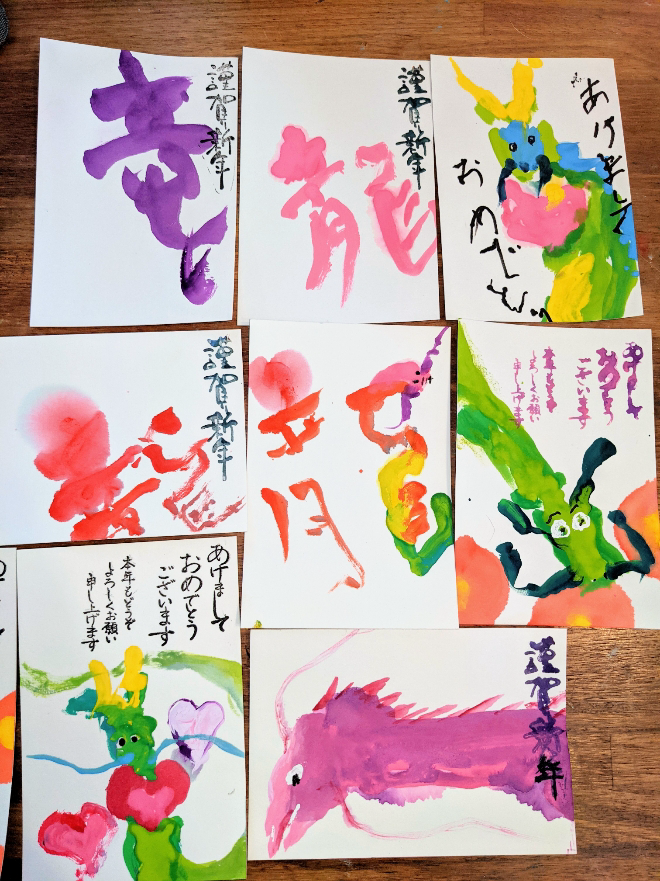 謹賀新年
竜
謹賀新年
龍
あけまして
おめでとう
謹賀新年
龍
龍
あけまして
おめでとう
ございます
本年もどうぞ
よろしくお願い
申し上げます
あけまして
おめでとう
ございます
本年もどうぞ
よろしくお願い
申し上げます
謹賀新年